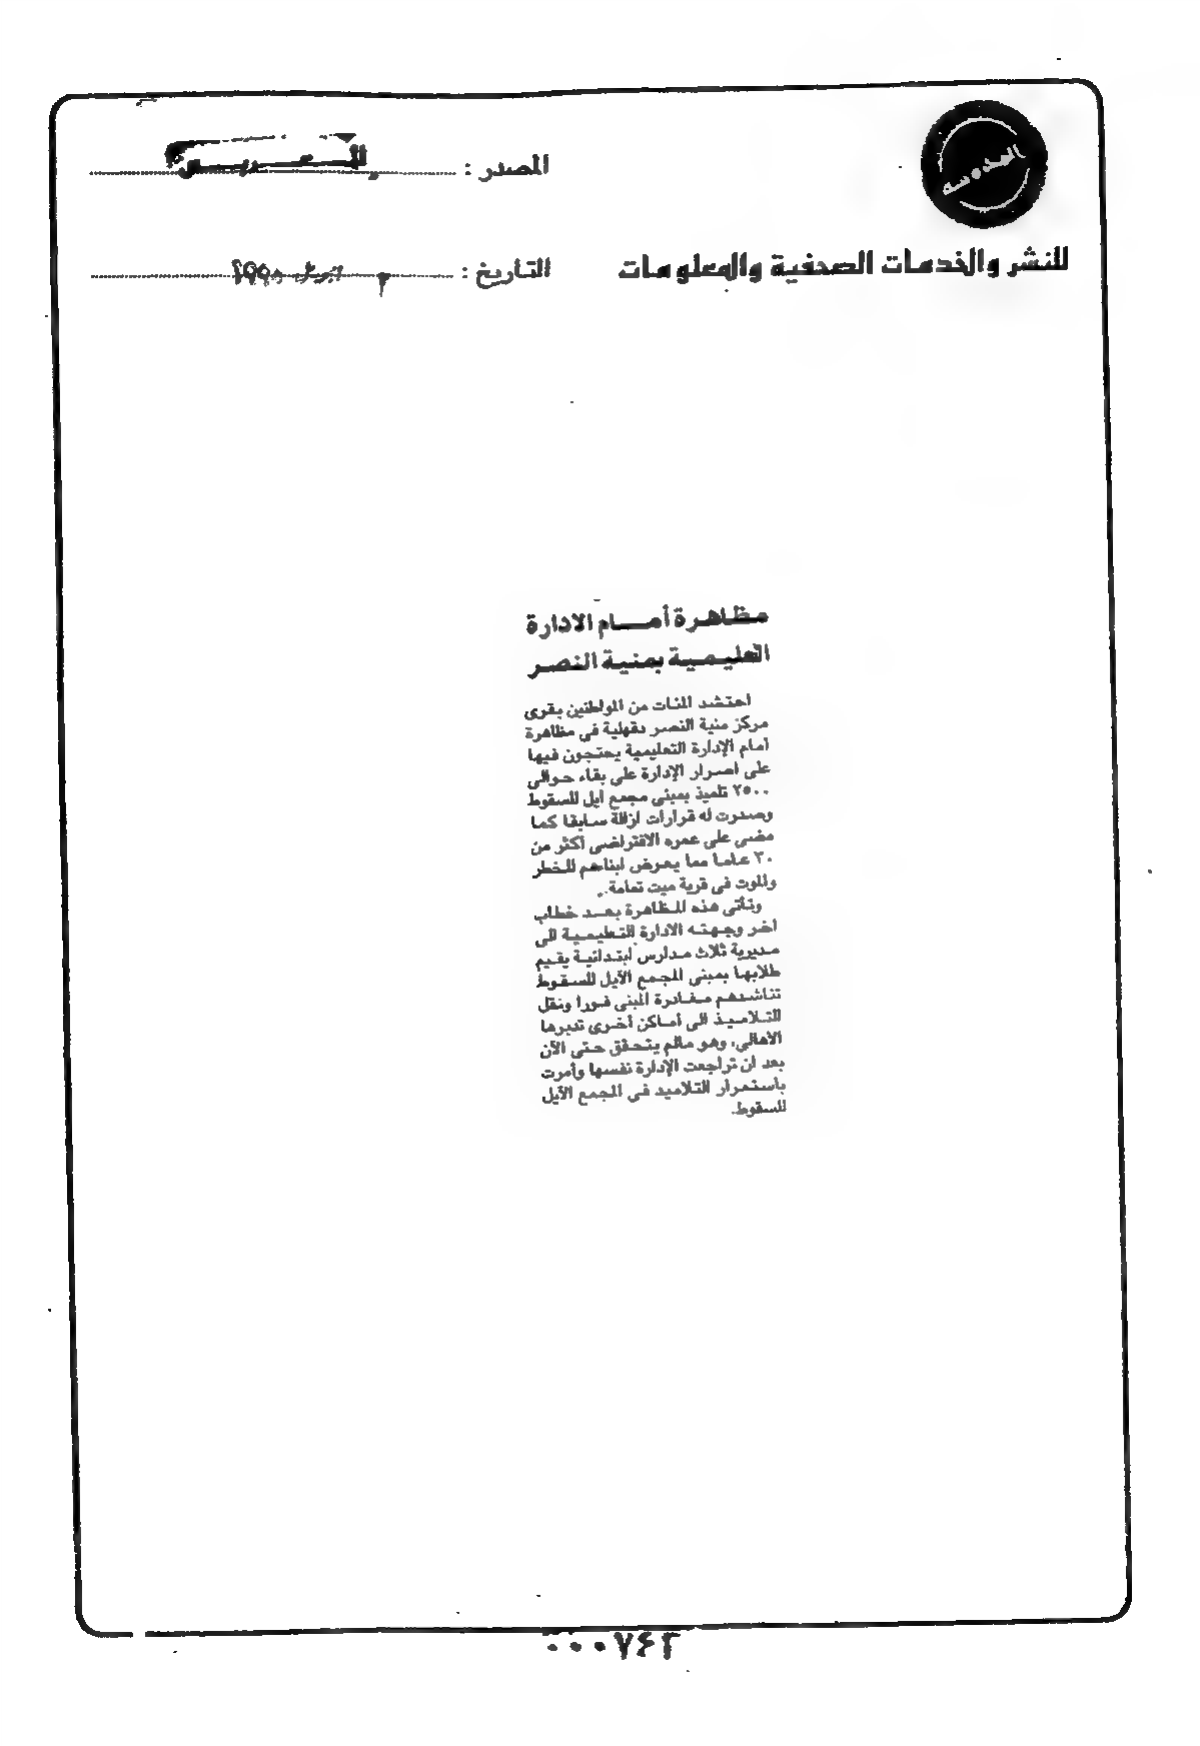 المصدر :
للنشر والخدمات الصحفية والمعلومات
التاريخ :
مظاهرة أمام الادارة
التعليمية بمنية النصر
احتشد المئات من المواطنين بقرى
مركز منية النصر دقهلية فى مظاهرة
أمام الإدارة التعليمية يحتجون فيها
على اصرار الإدارة على بقاء حوالى
٢٥٠٠ تلميذ بمبنى مجمع ايل للسقوط
وصدرت له قرارات ازالة سابقا كما
مضى على عمره الافتراضى أكثر من
٣٠ عاما مما يعرض ابناهم للخطر
والموت فى قرية ميت تمامة.
وتأتى هذه المظاهرة بعد خطاب
آخر وجهته الادارة التعليمية الى
مديرية ثلاث مدارس ابتدائية يقيم
طلابها بمبنى المجمع الآيل للسقوط
تناشدهم مغادرة المبنى فورا ونقل
التلاميذ الى أماكن أخرى تدبرها
الأهالى، وهو مالم يتحقق حتى الآن
بعد ان تراجعت الإدارة نفسها وأمرت
باستمرار التلاميذ فى المجمع الآيل
للسقوط.
٠٠٠٧٤٢